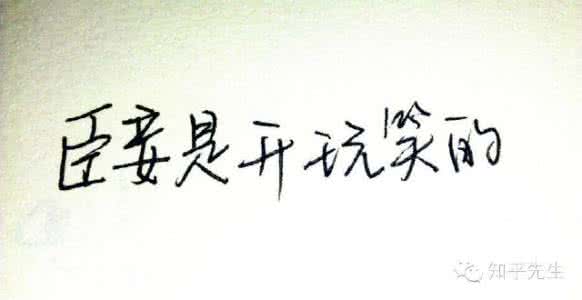 臣妾是开玩笑的
知乎先生